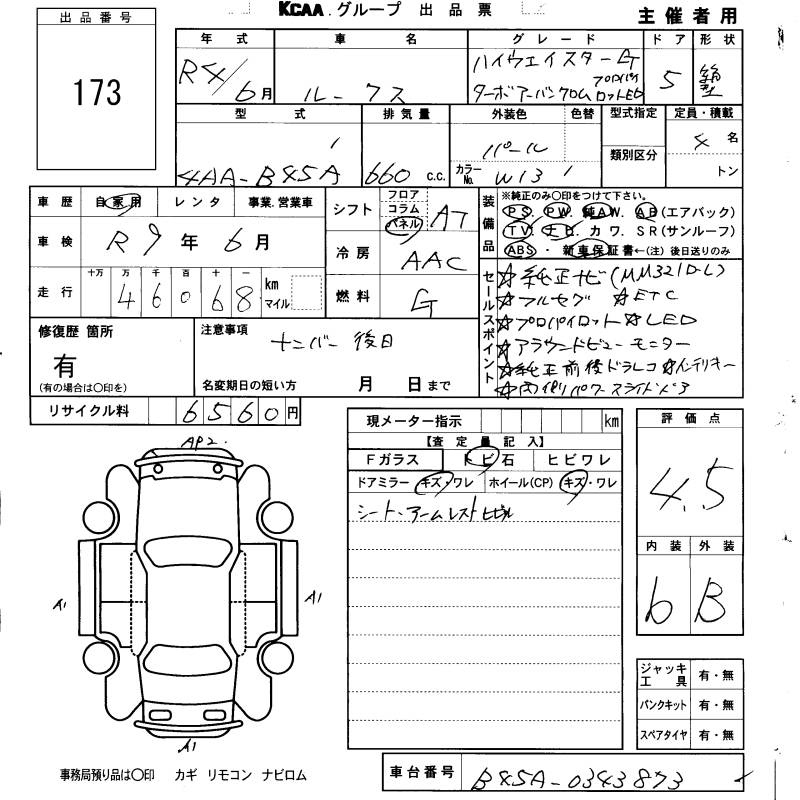 KCAA.グループ 出品票
主催者用
出品番号
173
年式 車名 グレード ドア 形状
R4/6月 ルークス ハイウェイスターG プロパイ ターボアーバンクロム ロットED 5 箱型
型式 排気量 外装色 色替 型式指定 定員・積載
4AA-B45A 660 c.c. パール カラーNo. W13 類別区分 4名 トン
車歴 自家用 レンタ 事業.営業車
車検 R9年6月
走行 十万 万 千 百 十 一 46068 km マイル
シフト フロア コラム パネル AT
冷房 AAC
燃料 G
装備品 ※純正のみ〇印をつけて下さい。
PS. PW. 純AW. AB(エアバック)
TV. ナビ. カワ. SR(サンルーフ)
ABS・新車保証書←(注)後日送りのみ
セールスポイント ☆純正ナビ(MM321D-L)
☆フルセグ ☆ETC
☆プロパイロット ☆LED
☆アラウンドビューモニター
☆純正前後ドラレコ ☆インテリキー
☆両側パワースライドドア
修復歴 箇所
有
(有の場合は〇印を)
注意事項
ナンバー後日
名変期日の短い方 月 日まで
リサイクル料 6560円
現メーター指示 km
【査定量記入】
Fガラス トビ石 ヒビワレ
ドアミラー キズ・ワレ ホイール(CP) キズ・ワレ
シート・アームレスト
評価点
4.5
内装 外装
6 B
ジャッキ工具 有・無
パンクキット 有・無
スペアタイヤ 有・無
AP2.
A1
A1
A1
事務局預り品は〇印 カギ リモコン ナビロム
車台番号 B45A-0343873